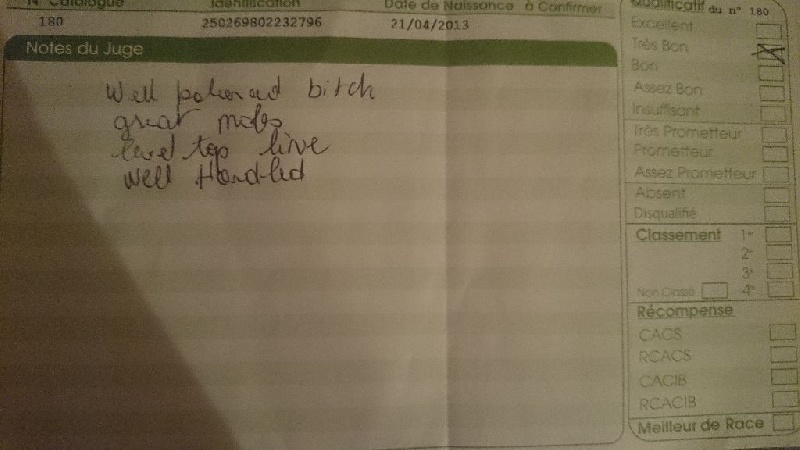 N° Catalogue Identification Date de Naissance à Confirmer
180 250269802232796 21/04/2013
Notes du Juge
Well bitch
great
level top line
well Handled
Qualificatif du n° 180
Excellent
Très Bon
Bon
Assez Bon
Insuffisant
Très Prometteur
Prometteur
Assez Prometteur
Absent
Disqualifié
Classement 1er
2e
3e
Non Classé 4e
Récompense
CACS
RCACS
CACIB
RCACIB
Meilleur de Race